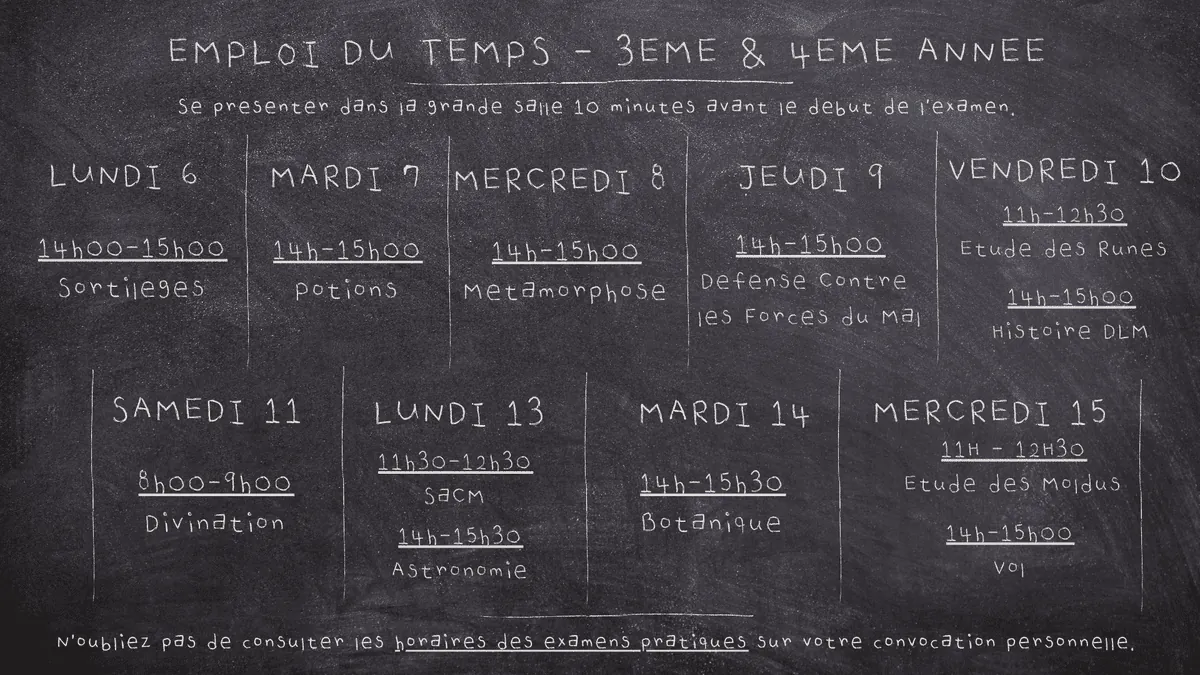 EMPLOI DU TEMPS - 3EME & 4EME ANNEE
Se presenter dans la grande salle 10 minutes avant le debut de l'examen.
LUNDI 6
14h00-15h00
Sortileges
MARDI 7
14h-15h00
Potions
MERCREDI 8
14h-15h00
Metamorphose
JEUDI 9
14h-15h00
Defense Contre
les Forces du Mal
VENDREDI 10
11h-12h30
Etude des Runes
14h-15h00
Histoire DLM
SAMEDI 11
8h00-9h00
Divination
LUNDI 13
11h30-12h30
SaCM
14h-15h30
Astronomie
MARDI 14
14h-15h30
Botanique
MERCREDI 15
11H - 12H30
Etude des Moldus
14h-15h00
Vol
N'oubliez pas de consulter les horaires des examens pratiques sur votre convocation personnelle.